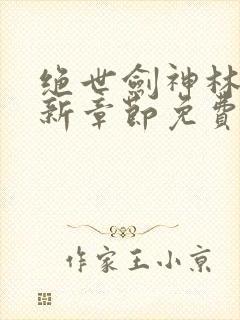 绝世剑神林
新章节免费
作家王小京